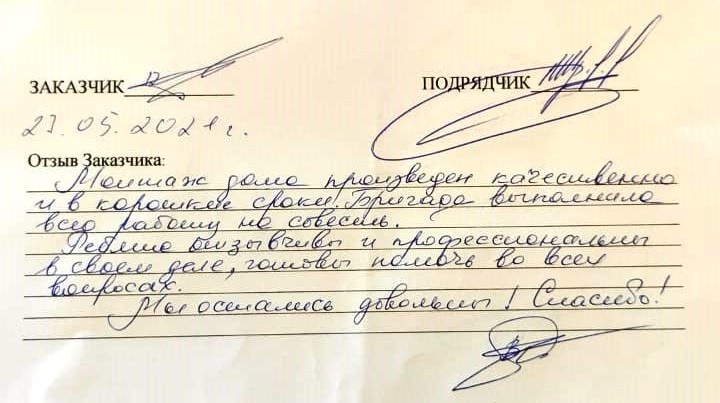 ЗАКАЗЧИК ПОДРЯДЧИК
23.05.2021 г.
Отзыв Заказчика:
Монтаж дома произведен качественно
и в короткие сроки. Бригада выполнила
всю работу на совесть.
Ребята отзывчивы и профессиональны
в своем деле, готовы помочь во всех
вопросах.
Мы остались довольны! Спасибо!